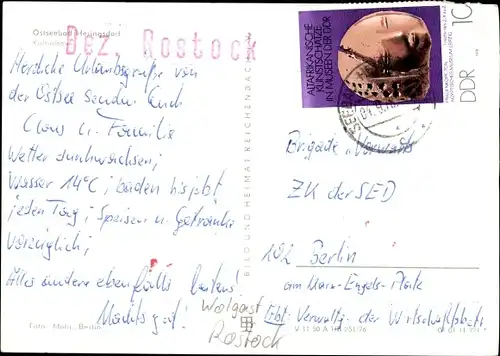 Ostseebad Heringsdorf
Bez. Rostock
Herzliche Urlaubsgrüße von
der Ostsee senden Euch
Claus u. Familie
Wetter durchwachsen;
Wasser 14°C; baden bis jetzt
jeden Tag; Speisen u. Getränke
vorzüglich;
Alles andere ebenfalls bestens!
Machts gut!
Wolgast
Rostock
Foto: Mohn, Berlin
BILD UND HEIMAT REICHENBACH
ALTAFRIKANISCHE
KUNSTSCHÄTZE
IN MUSEEN DER DDR
10
DDR
Brigade "Vorwärts"
ZK der SED
102 Berlin
am Marx-Engels-Platz
Abt. Verwaltg. der Wirtschaftsbetr.
V 11 50 A 1/B 251/76